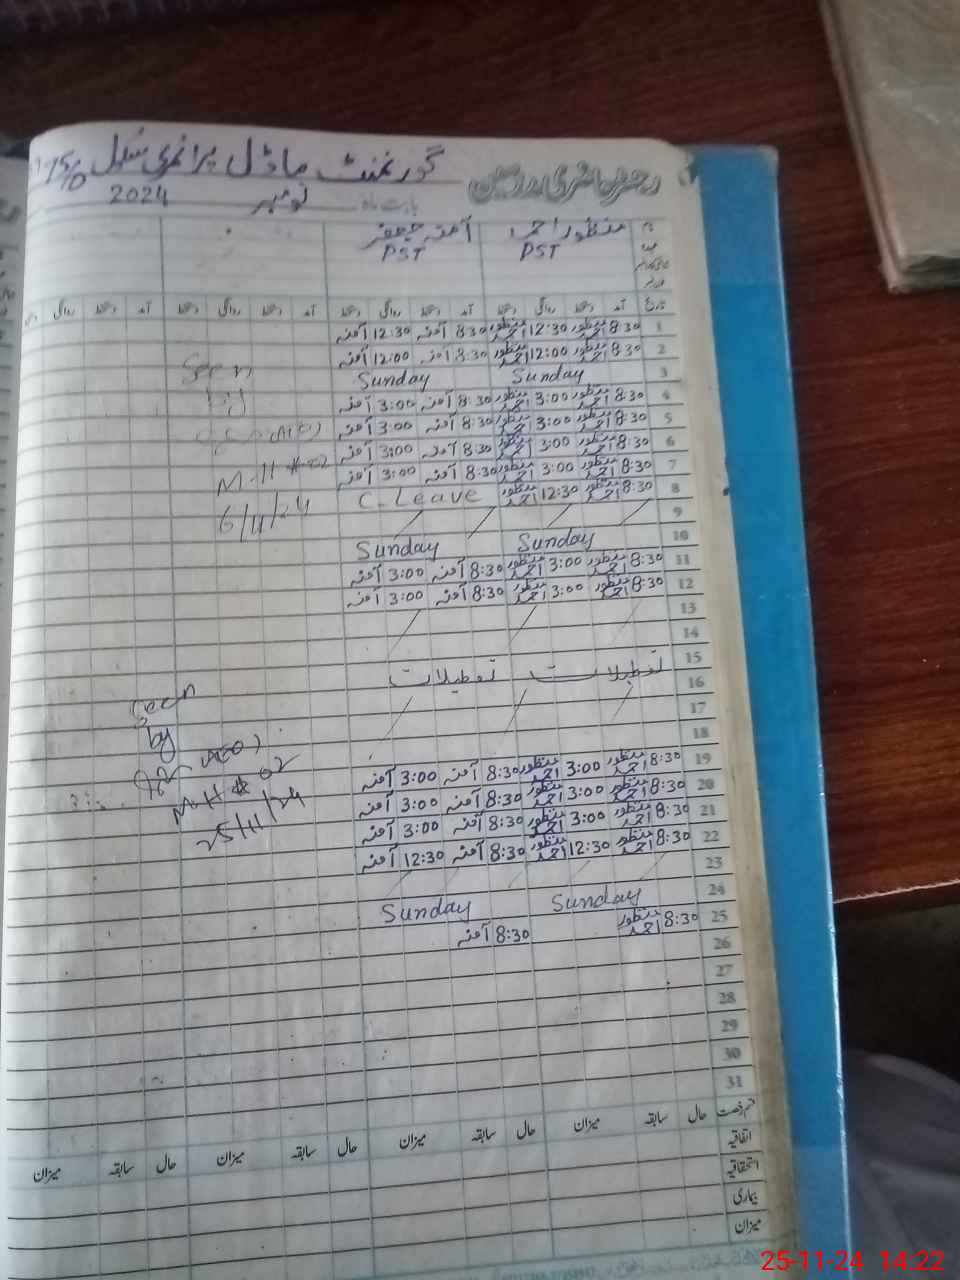 گورنمنٹ ماڈل پرائمری سکول
رجسٹر حاضری مدرسین
بابت ماہ نومبر 2024
منظور احمد آمنہ جعفر
PST PST
تاریخ آمد دستخط روانگی دستخط آمد دستخط روانگی دستخط آمد دستخط روانگی دستخط آمد دستخط روانگی
1 8:30 منظور احمد 12:30 منظور احمد 8:30 آمنہ 12:30 آمنہ
2 8:30 منظور احمد 12:00 منظور احمد 8:30 آمنہ 12:00 آمنہ
3 Sunday Sunday
4 8:30 منظور احمد 3:00 منظور احمد 8:30 آمنہ 3:00 آمنہ
5 8:30 منظور احمد 3:00 منظور احمد 8:30 آمنہ 3:00 آمنہ
6 8:30 منظور احمد 3:00 منظور احمد 8:30 آمنہ 3:00 آمنہ
7 8:30 منظور احمد 3:00 منظور احمد 8:30 آمنہ 3:00 آمنہ
8 8:30 منظور احمد 12:30 منظور احمد C. Leave
9
10 Sunday Sunday
11 8:30 منظور احمد 3:00 منظور احمد 8:30 آمنہ 3:00 آمنہ
12 8:30 منظور احمد 3:00 منظور احمد 8:30 آمنہ 3:00 آمنہ
13
14
15 تعطیلات تعطیلات
16
17
18
19 8:30 منظور احمد 3:00 منظور احمد 8:30 آمنہ 3:00 آمنہ
20 8:30 منظور احمد 3:00 منظور احمد 8:30 آمنہ 3:00 آمنہ
21 8:30 منظور احمد 3:00 منظور احمد 8:30 آمنہ 3:00 آمنہ
22 8:30 منظور احمد 12:30 منظور احمد 8:30 آمنہ 12:30 آمنہ
23
24 Sunday Sunday
25 8:30 منظور احمد 8:30 آمنہ
26
27
28
29
30
31
Seen
by
M.H # 02
6/11/24
Seen
by
M.H # 02
25/11/24
قسم رخصت حال سابقہ میزان حال سابقہ میزان حال سابقہ میزان حال سابقہ میزان
اتفاقیہ
استحقاقیہ
بیماری
میزان
25-11-24 14:22